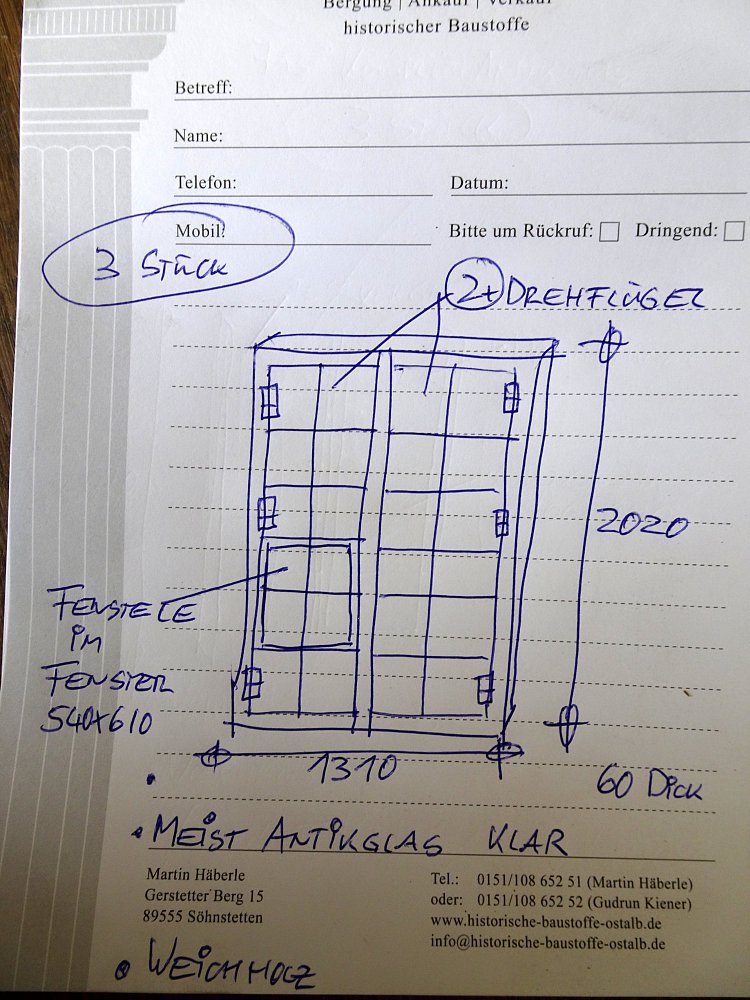 Bergung | Ankauf | Verkauf
historischer Baustoffe
Betreff:
Name:
Telefon:
Datum:
Mobil:
Bitte um Rückruf:
Dringend:
3 STÜCK
2+ DREHFLÜGEL
2020
FENSTERLE
IM
FENSTER
540x610
1310
60 DICK
• MEIST ANTIKGLAS KLAR
Martin Häberle
Gerstetter Berg 15
89555 Söhnstetten
Tel.: 0151/108 652 51 (Martin Häberle)
oder: 0151/108 652 52 (Gudrun Kiener)
www.historische-baustoffe-ostalb.de
info@historische-baustoffe-ostalb.de
• WEICHHOLZ